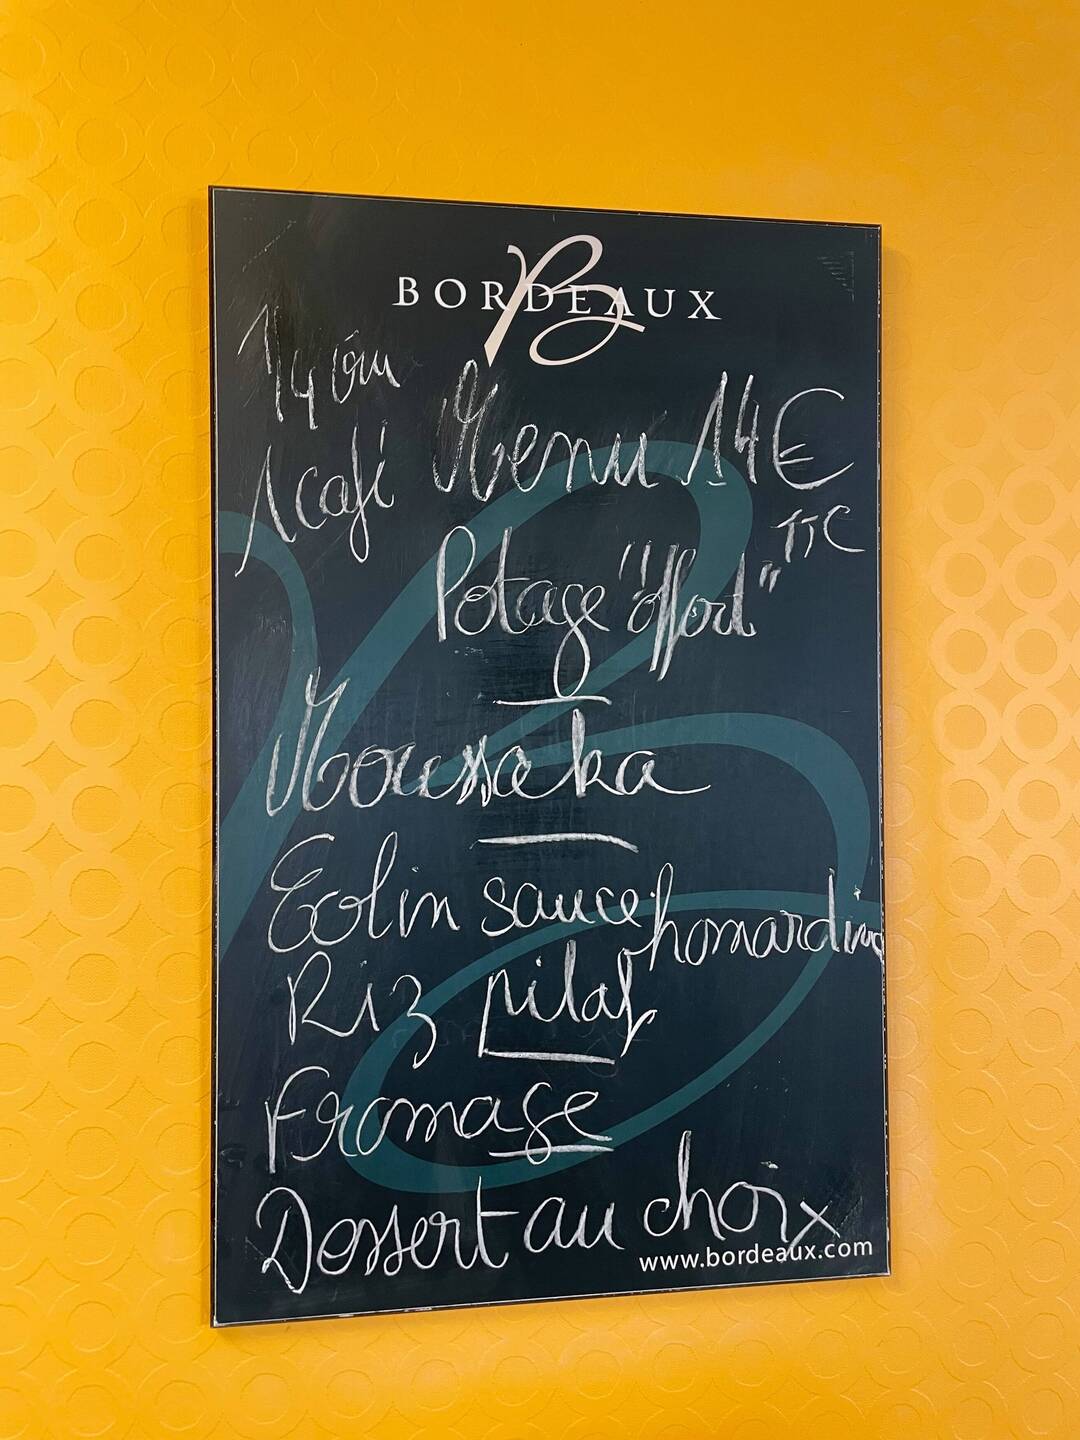 BORDEAUX
1/4 vin
1 café
Menu 14€
TTC
Potage "offert"
Moussaka
Colin sauce homardine
Riz pilaf
Fromage
Dessert au choix
www.bordeaux.com